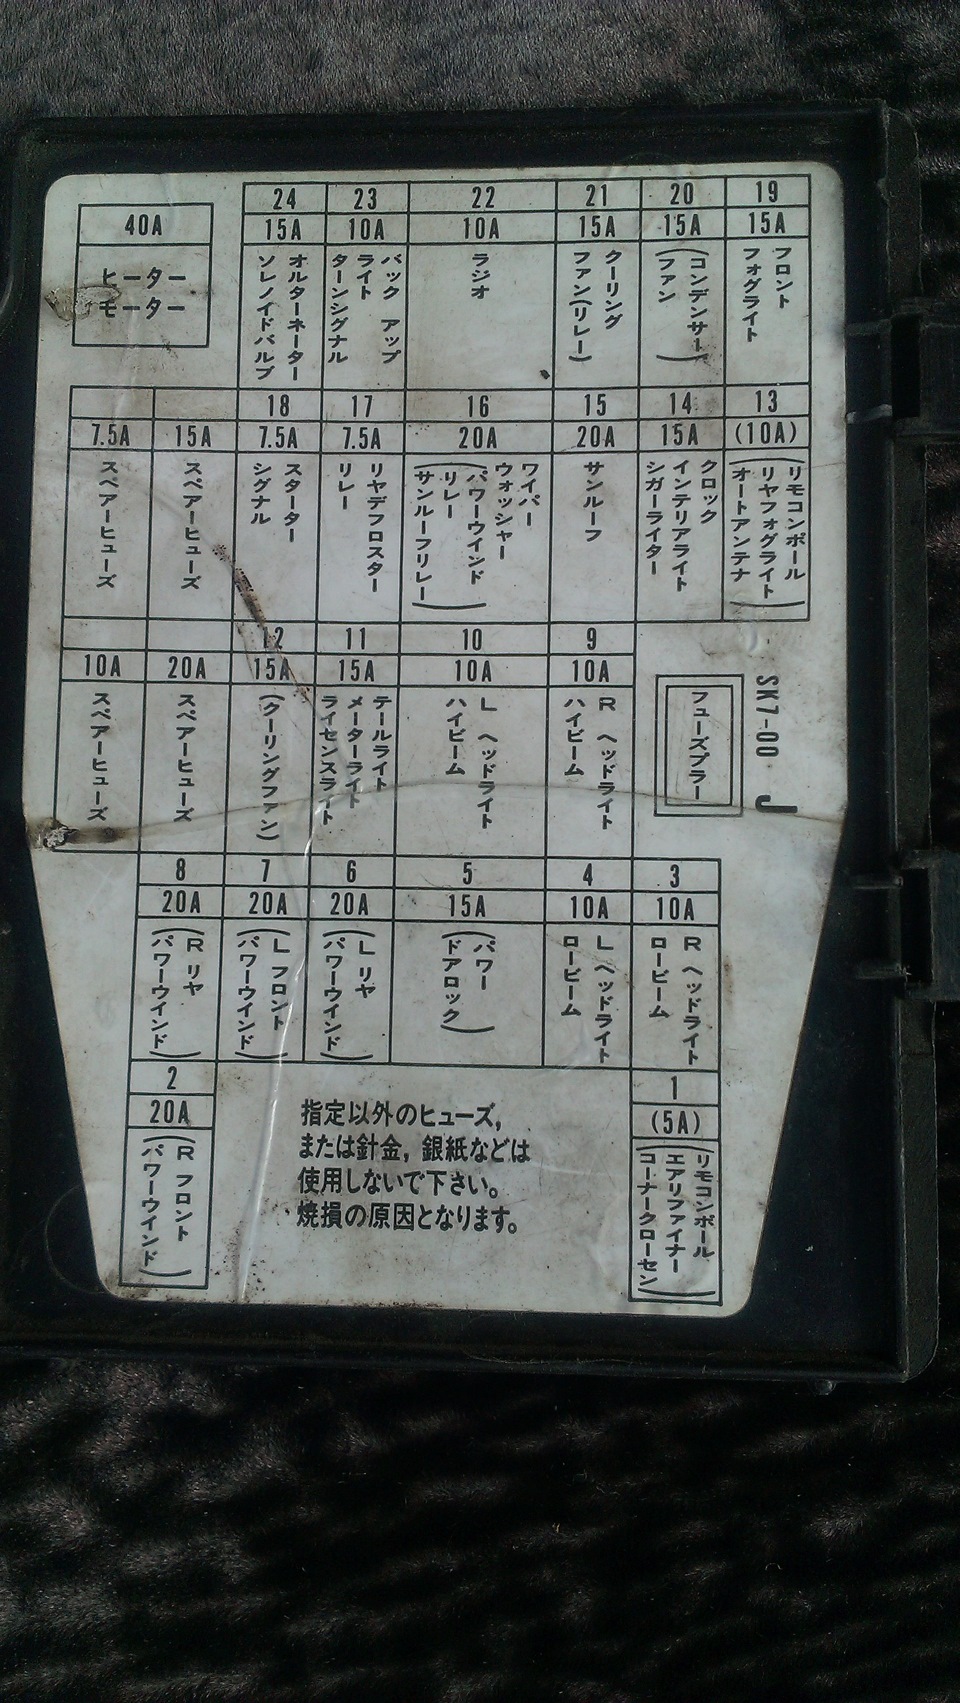 40A
ヒーター
モーター
24
15A
オルターネーター
ソレノイドバルブ
23
10A
バック アップ
ライト
ターンシグナル
22
10A
ラジオ
21
15A
クーリング
ファン(リレー)
20
15A
(コンデンサー
ファン)
19
15A
フロント
フォグライト
7.5A
スペアーヒューズ
15A
スペアーヒューズ
18
7.5A
スターター
シグナル
17
7.5A
リヤデフロスター
リレー
16
20A
ワイパー
ウォッシャー
(パワーウインド
リレー
サンルーフリレー)
15
20A
サンルーフ
14
15A
クロック
インテリアライト
シガーライター
13
(10A)
(リモコンポール
リヤフォグライト
オートアンテナ)
10A
スペアーヒューズ
20A
スペアーヒューズ
12
15A
(クーリングファン)
11
15A
テールライト
メーターライト
ライセンスライト
10
10A
L ヘッドライト
ハイビーム
9
10A
R ヘッドライト
ハイビーム
フューズプラー
SK7-00 J
8
20A
(R リヤ
パワーウインド)
7
20A
(L フロント
パワーウインド)
6
20A
(L リヤ
パワーウインド)
5
15A
(パワー
ドアロック)
4
10A
L ヘッドライト
ロービーム
3
10A
R ヘッドライト
ロービーム
2
20A
(R フロント
パワーウインド)
指定以外のヒューズ,
または針金,銀紙などは
使用しないで下さい。
焼損の原因となります。
1
(5A)
(リモコンポール
エアリファイナー
コーナークローセン)